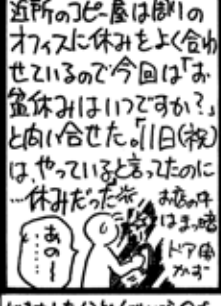 近所のコピー屋は周りの
オフィスに休みをよく合わ
せているので今回は「お
盆休みはいつですか?」
と問い合せた。「11日(祝)
は、やっていると言ってたのに
…休みだった
お店の中
はまっ暗
ドア開
かず
あの〜